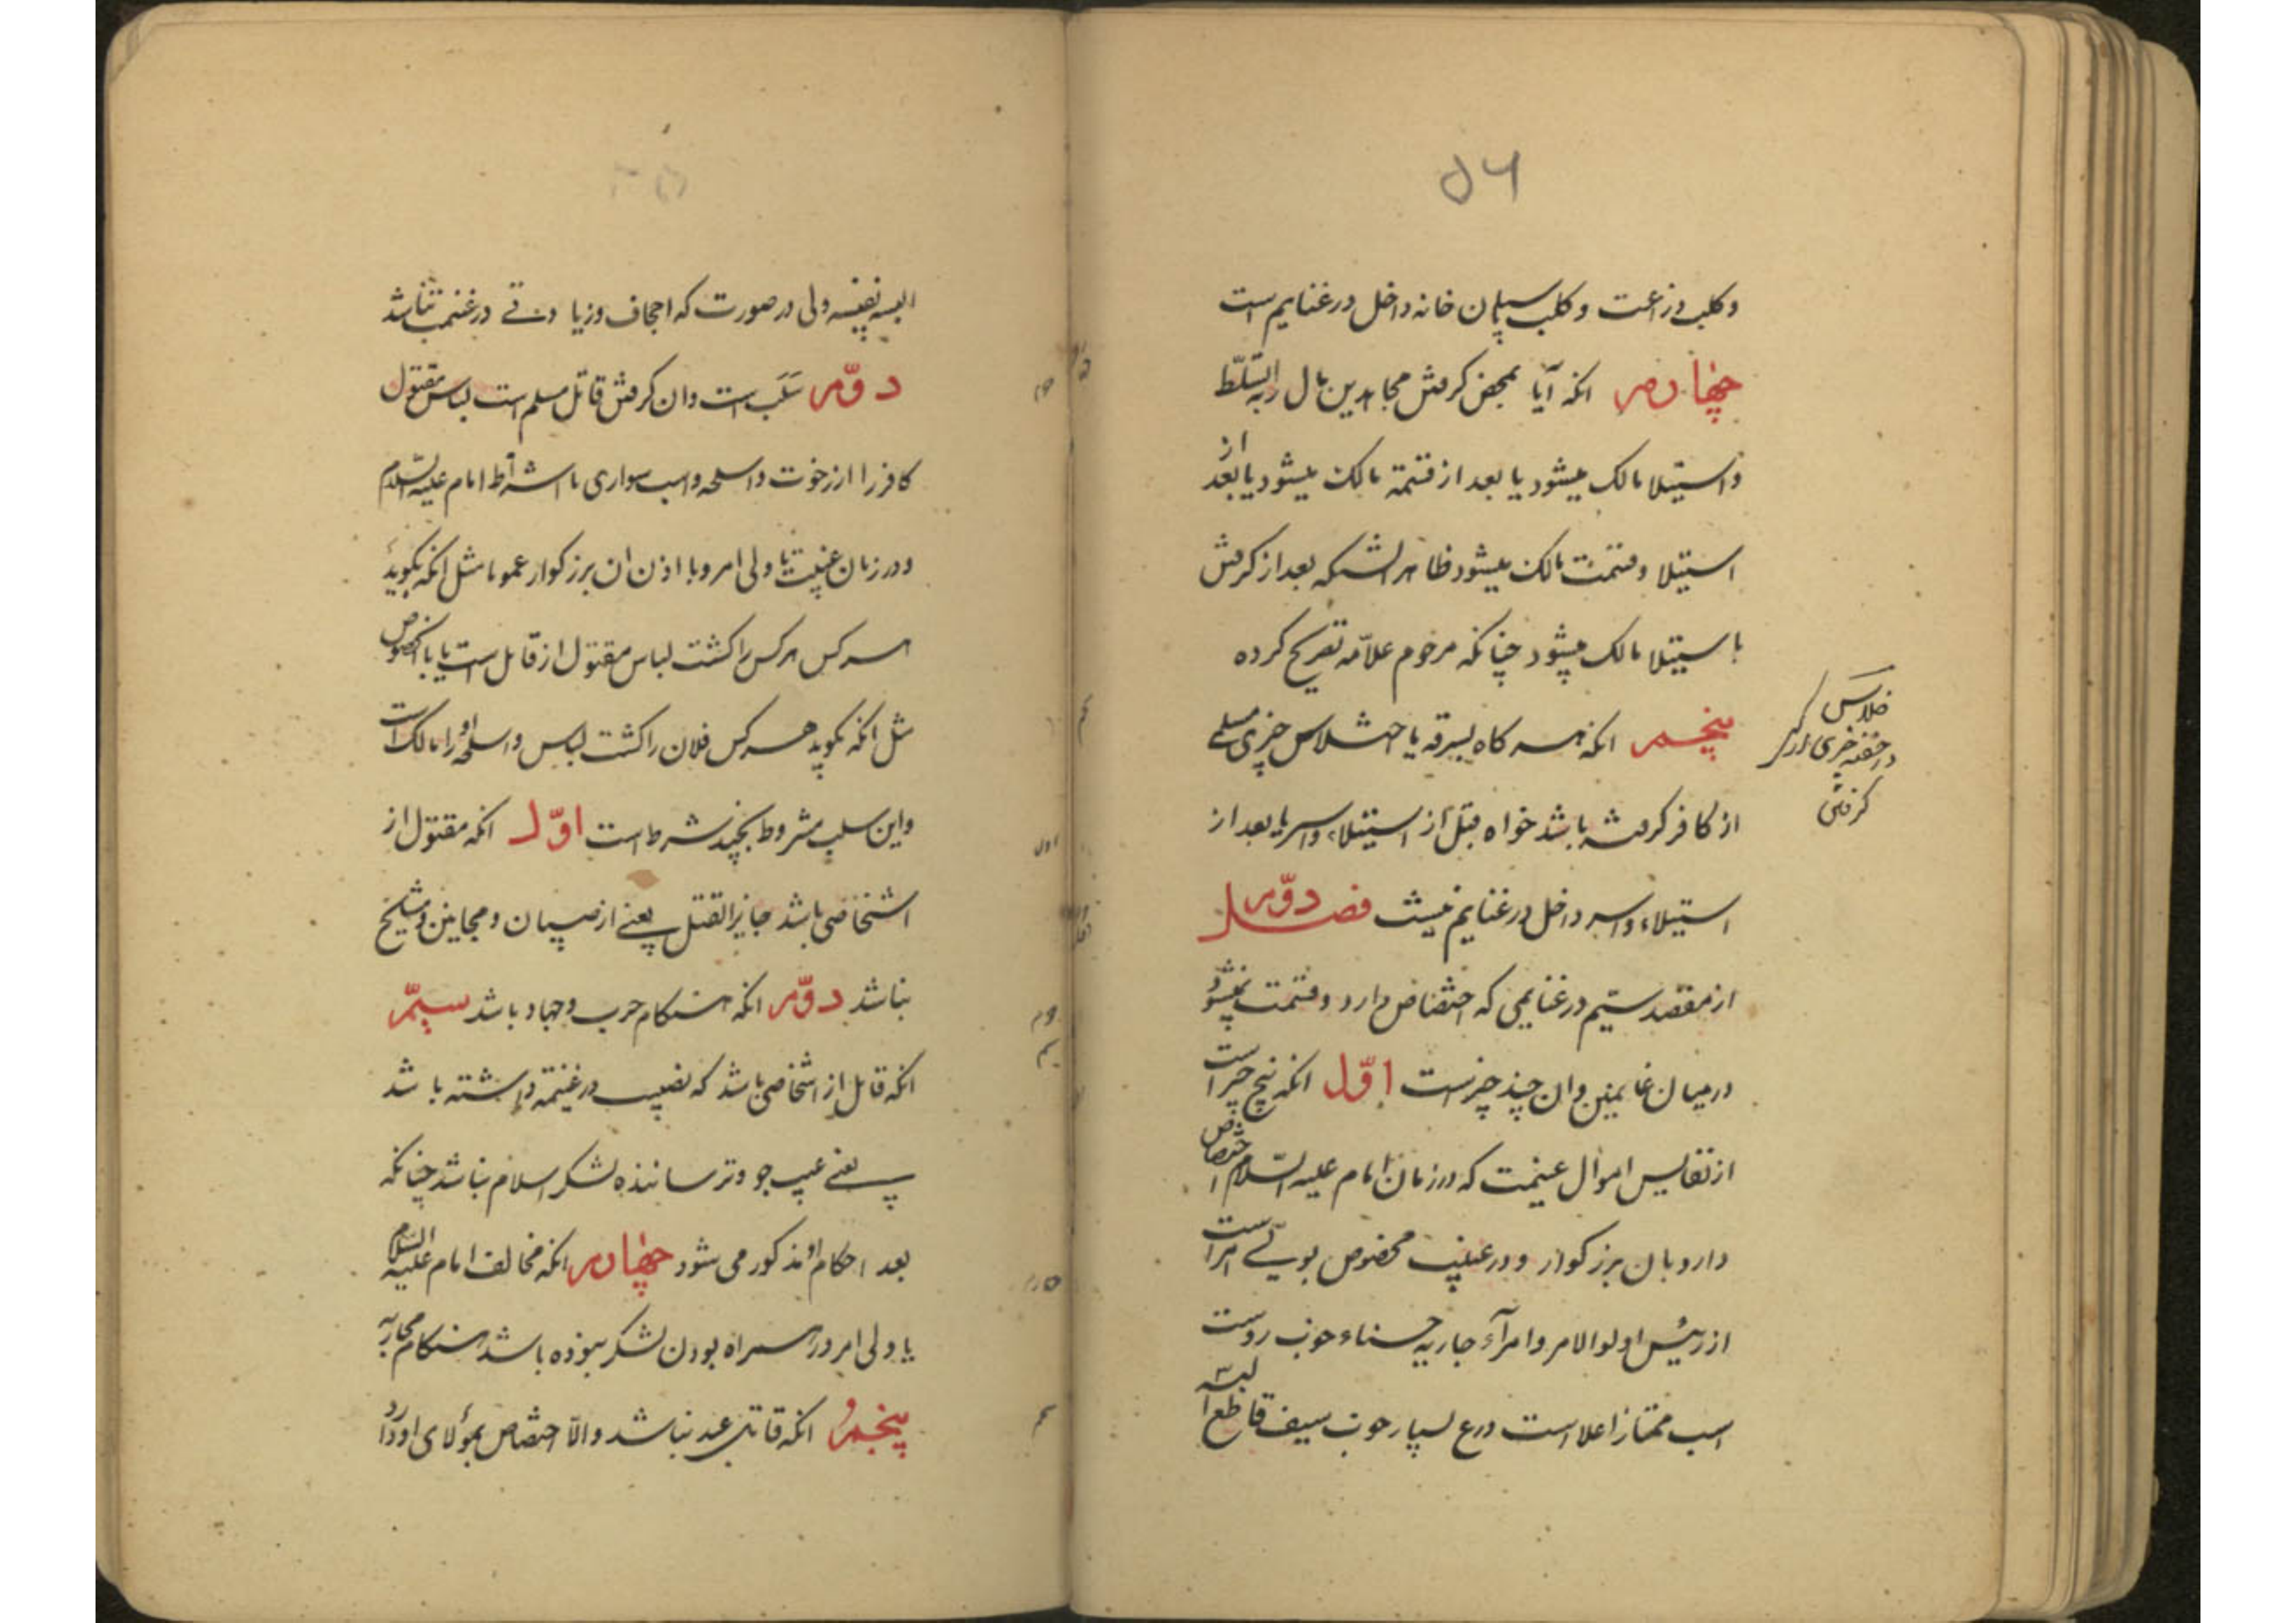 ۵۶
وکلب زراعت و کلب پاسبان خانه داخل در غنایم است
چهارم انکه آیا بمحض کرفتن مجاهدین مال را به التسلّط
و استیلا مالک میشود یا بعد از قسمة مالک میشود یا بعد از
استیلا و قسمت مالک میشود ظاهر انستکه بعد از کرفتن
با ستیلا مالک میشود چنانکه مرحوم علاّمه تصریح کرده
پنجم انکه هر کاه بسرقه یا اختلاس چیزی مسلمی
از کافر کرفته باشد خواه قبل از استیلاء و اسر یا بعد از
استیلاء و اسر داخل در غنایم نیست فصل دوّم
از مقصد سیّم در غنایمی که اختصاص دارد و قسمت نمیشود
در میان غانمین و ان چند چیزست اوّل انکه پنج چیز است
از نفایس اموال غنیمت که در زمان امام علیه السّلام اختصاص
دارد بان بزرکوار و در غیبت مخصوص بولی امر است
از رئیس اولوالامر و امرآء جاریه حسناء خوب روست
اسب ممتاز اعلا است درع بسیار خوب سیف قاطع
اختلاس
در خفیه چیزی از کسی
کرفتن
البسه نفیسه ولی در صورت که اجحاف و زیادتی در غنیمت نباشد
دوّم سَلَب است و ان کرفتن قاتل مسلم است لباس مقتول
کافر را از رخوت و اسلحه و اسب سواری با اشتراط امام علیه السّلام
و در زمان غیبت با ولی امر و با اذن ان بزرکوار عموما مثل انکه بکوید
هر کس هر کس را کشت لباس مقتول از قاتل است یا بالخصوص
مثل انکه بکوید هر کس فلان را کشت لباس و اسلحه او را مالک است
و این سلب مشروط بچند شرط است اوّل انکه مقتول از
اشخاصی باشد جایز القتل یعنے از صبیان و مجانین و مشایخ
نباشد دوّم انکه هنکام حرب و جهاد باشد سیّم
انکه قاتل از اشخاصی باشد که نصیب در غنیمة داشته باشد
یعنے عیب جو و ترساننده لشکر اسلام نباشد چنانکه
بعد احکام او مذکور می شود چهارم انکه مخالف امام علیه السّلام
یا ولی امر در همراه بودن لشکر نبوده باشد هنکام محاربه
پنجم انکه قاتل عبد نباشد والّا اختصاص بمولای او دارد